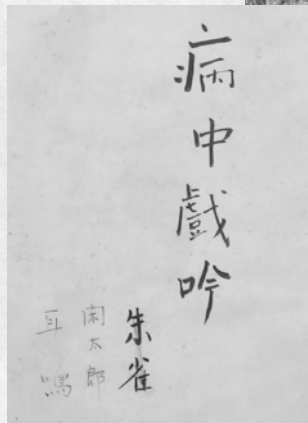 病中戯吟
朱雀
閑太郎
耳鳴